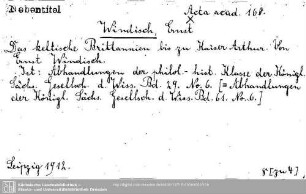 Nebentitel
Acta acad. 168.
Windisch, Ernst
Das keltische Brittannien bis zu Kaiser Arthur. Von
Ernst Windisch.
Jst: Abhandlungen der philol.-hist. Klasse der Königl.
Sächs. Gesellsch. d. Wiss. Bd. 29. No. 6. [= Abhandlungen
der Königl. Sächs. Gesellsch. d. Wiss. Bd. 61. No. 6.]
Leipzig 1912.
8°[zu 4°]